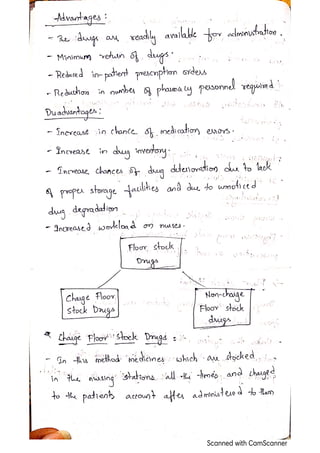 Advantages :
- The drugs are readily available for administration.
- Minimum return of drugs.
- Reduced in-patient prescription orders
- Reduction in number of pharmacy personnel required.
Disadvantages :
- Increase in chance of medication errors.
- Increase in drug inventory.
- Increase chances of drug deterioration due to lack
of proper storage facilities and due to unnoticed
drug degradation
- Increased workload on nurses.
Floor stock
Drugs
Charge Floor
Stock Drugs
Non-charge
Floor stock
drugs
* Charge Floor Stock Drugs :
- In this method medicines which are stocked
in the nursing stations all the times and charged
to the patients account after administered to them
Scanned with CamScanner